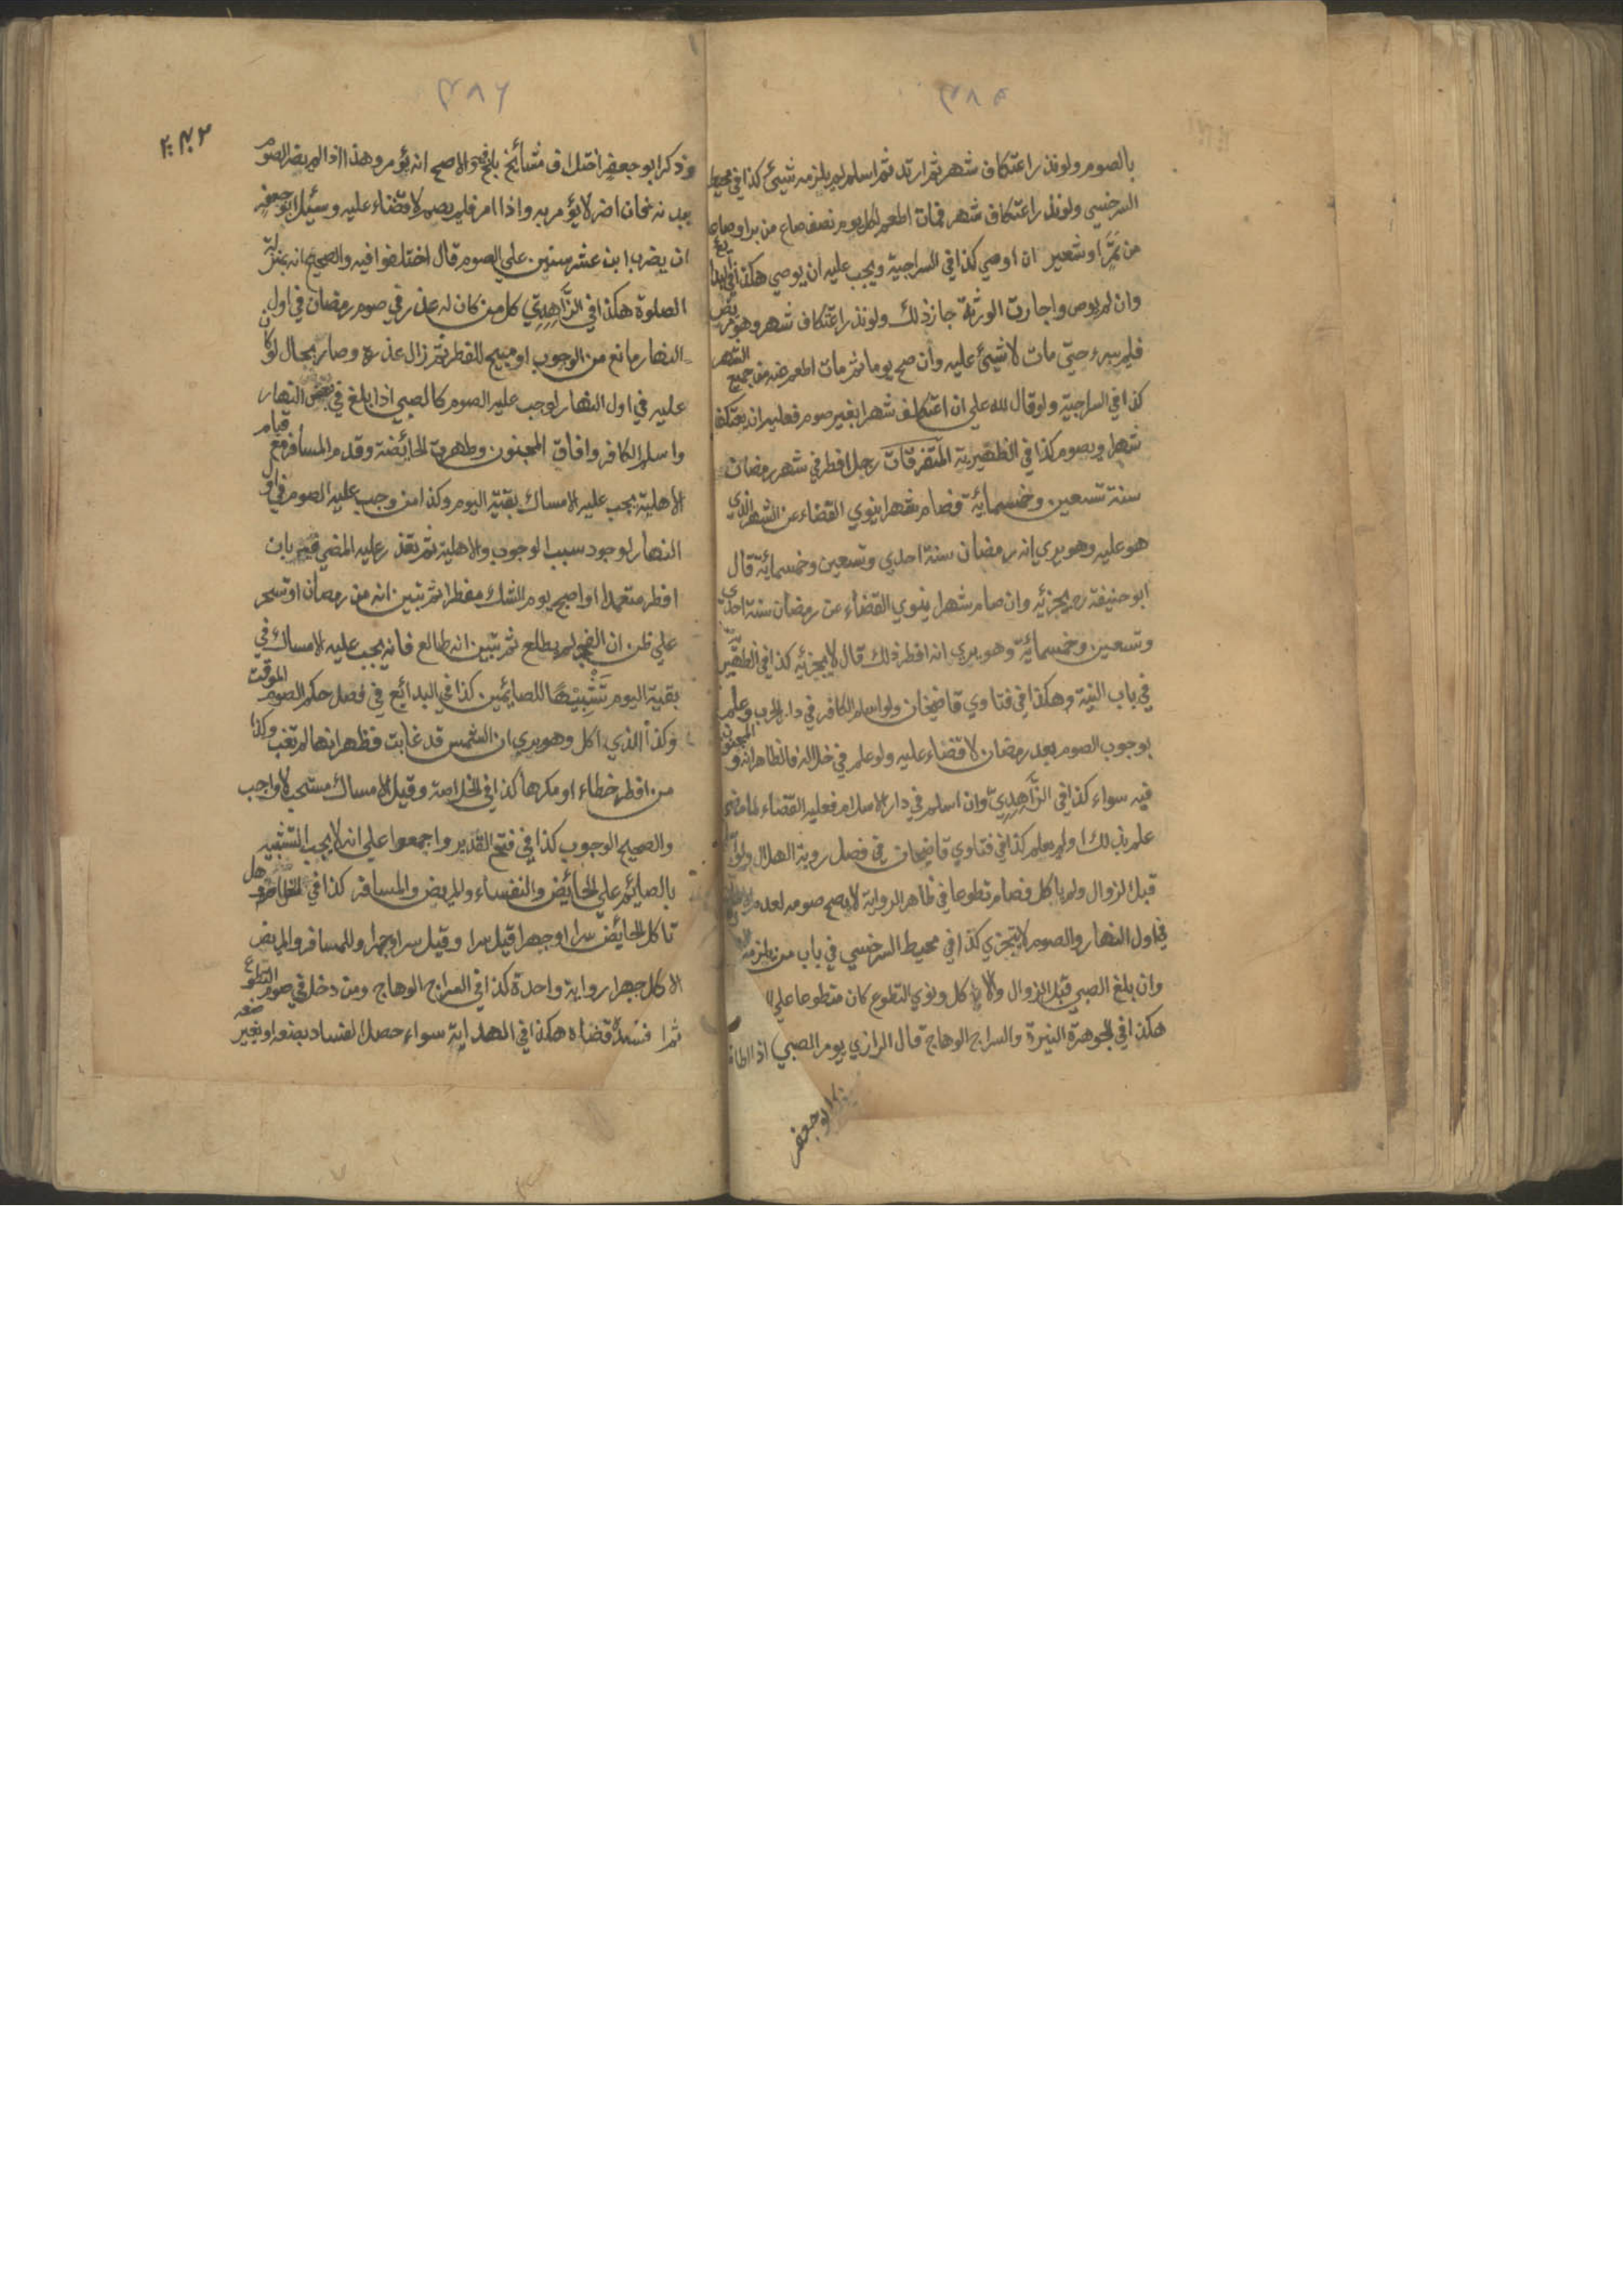 ٣٨٥
بالصوم ولو نذر اعتكاف شهر ثم ارتد ثم اسلم لم يلزمه شيئ كذا في محيط
السرخسي ولو نذر اعتكاف شهر فمات اطعم لكل يوم نصف صاع من بر او صاع
من تمر او شعير ان اوصي كذا في السراجية ويجب عليه ان يوصي هكذا في البدايع
وان لم يوص واجازت الورثة جاز ذلك ولو نذر اعتكاف شهر وهو مريض
فلم يبرء حتي مات لا شيئ عليه وان صح يوما ثم مات اطعم عنه من جميع الشهر
كذا في السراجية ولو قال لله علي ان اعتكف شهرا بغير صوم فعليه ان يعتكف
شهرا ويصوم كذا في الظهيرية المتفرقات رجل افطر في شهر رمضان
سنة تسعين وخمسمائية فصام شهرا ينوي القضاء عن الشهر الذي
هو عليه وهو يري انه رمضان سنة احدي وتسعين وخمسمائية قال
ابو حنيفة رح يجزئيه وان صام شهرا ينوي القضاء عن رمضان سنة احدي
وتسعين وخمسمائية وهو يري انه افطر ذلك قال لا يجزئيه كذا في الظهيرية
في باب النية وهكذا في فتاوي قاضيخان ولو اسلم الكافر في دار الحرب وعلم
بوجوب الصوم بعد رمضان لا قضاء عليه ولو علم في خلاله فالظاهر انه والمجنون
فيه سواء كذا في الزاهدي وان اسلم في دار الاسلام فعليه القضاء لما مضي
علم بذلك او لم يعلم كذا في فتاوي قاضيخان في فصل روية الهلال ولو
قبل الزوال ولم ياكل فصام تطوعا في ظاهر الرواية لا يصح صومه لعدم
في اول النهار والصوم لا يتجزي كذا في محيط السرخسي في باب من يلزمه
وان بلغ الصبي قبل الزوال ولا ياكل ونوي التطوع كان متطوعا علي
هكذا في الجوهرة النيرة والسراج الوهاج قال الرازي يومر الصبي اذا اطاق
وذكر ابو جعفر
٣٨٦
٢٠٣
وذكر ابو جعفر اختلاف مشائخ بلخ فيه والاصح انه يؤمر وهذا اذا لم يضر الصوم
ببدنه فان اضر لا يؤمر به واذا امر فلم يصم لا قضاء عليه وسئيل ابو جعفر
ان يضرب ابن عشر سنين علي الصوم قال اختلفوا فيه والصحيح انه بمنزلة
الصلوة هكذا في الزاهدي كل من كان له عذر في صوم رمضان في اول
النهار مانع من الوجوب او مبيح للفطر ثم زال عذره وصار بحال لو كان
عليه في اول النهار لوجب عليه الصوم كالصبي اذا بلغ في بعض النهار
واسلم الكافر وافاق المجنون وطهرت الحائيضة وقدم المسافر مع قيام
الاهلية يجب عليه الامساك بقية اليوم وكذا من وجب عليه الصوم في اول
النهار لوجود سبب الوجوب والاهلية ثم تعذر عليه المضي فيه بان
افطر متعمدا او اصبح يوم الشك مفطرا ثم تبين انه من رمضان او تسحر
علي ظن ان الفجر لم يطلع ثم تبين انه طالع فانه يجب عليه الامساك في
بقية اليوم تَشْبِيْهًا للصائيمين كذا في البدائيع في فصل حكم الصوم الموقت
وكذا الذي اكل وهو يري ان الشمس قد غابت فظهر انها لم تغب وكذا
من افطر خطاء او مكرها كذا في الخلاصة وقيل الامساك مستحب لا واجب
والصحيح الوجوب كذا في فتح القدير واجمعوا علي انه لا يجب التشبيه
بالصائيم علي الحائيض والنفساء والمريض والمسافر كذا في الخلاصة هل
تاكل الحائيض سرا او جهرا قيل سرا وقيل سرا وجهرا وللمسافر والمريض
الاكل جهرا رواية واحدة كذا في السراج الوهاج ومن دخل في صوم التطوع
ثم افسده قضاه هكذا في الهداية سواء حصل الفساد بصنعه او بغير صنعه